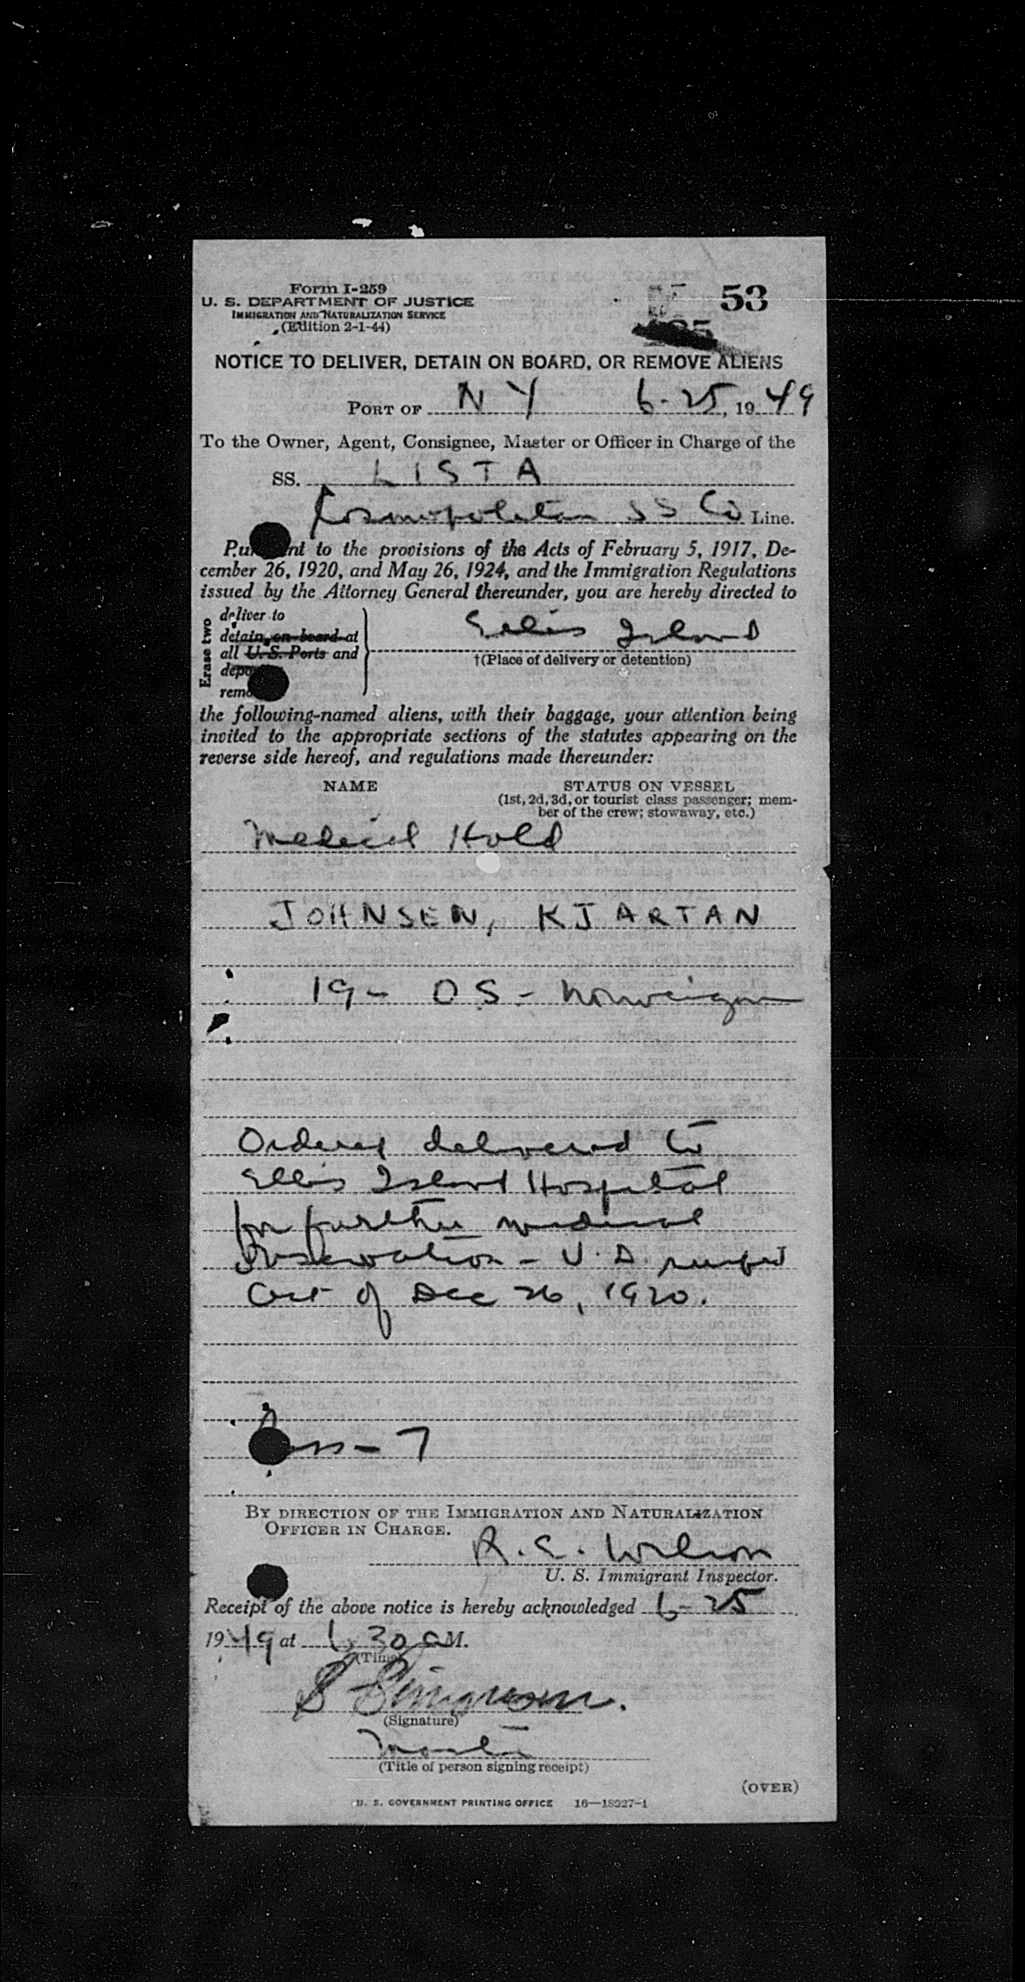 Form I-259
53
U. S. DEPARTMENT OF JUSTICE
IMMIGRATION AND NATURALIZATION SERVICE
(Edition 2-1-44)
NOTICE TO DELIVER, DETAIN ON BOARD, OR REMOVE ALIENS
PORT OF N Y 6-25, 1949
To the Owner, Agent, Consignee, Master or Officer in Charge of the
SS. LISTA
Cosmopolitan SS Co Line.
to the provisions of the Acts of February 5, 1917, De-
cember 26, 1920, and May 26, 1924, and the Immigration Regulations
issued by the Attorney General thereunder, you are hereby directed to
Erase two
deliver to
detain on board at
all U. S. Ports and
Ellis Island
†(Place of delivery or detention)
the following-named aliens, with their baggage, your attention being
invited to the appropriate sections of the statutes appearing on the
reverse side hereof, and regulations made thereunder:
NAME STATUS ON VESSEL
(1st, 2d, 3d, or tourist class passenger; mem-
ber of the crew; stowaway, etc.)
Medical Hold
JOHNSEN, KJARTAN
19 - OS - Norwegian
Ordered delivered to
Ellis Island Hospital
for further medical
observation - V.D. suspect
Act of Dec 26, 1920.
- 7
BY DIRECTION OF THE IMMIGRATION AND NATURALIZATION
OFFICER IN CHARGE.
R. C. Wilson
U. S. Immigrant Inspector.
Receipt of the above notice is hereby acknowledged 6-25
1949 at 6 30 a M.
(Time)
(Signature)
Master
(Title of person signing receipt)
(OVER)
U. S. GOVERNMENT PRINTING OFFICE 16—18227-1